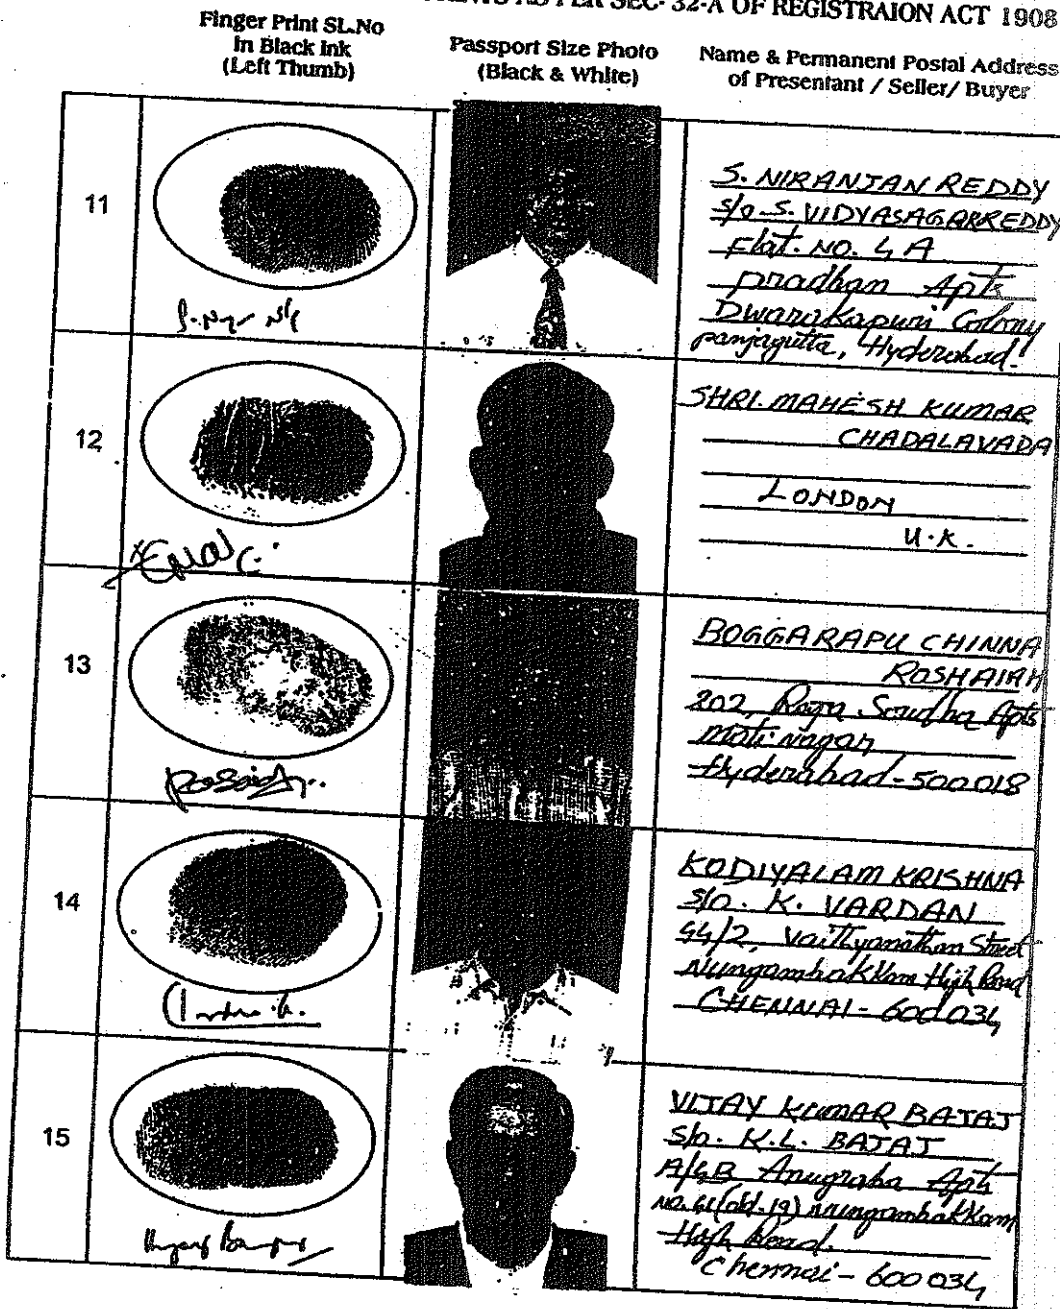 AS PER SEC- 32-A OF REGISTRAION ACT 1908
Finger Print SL.No
In Black Ink
(Left Thumb)
Passport Size Photo
(Black & White)
Name & Permanent Postal Address
of Presentant / Seller/ Buyer
11
S. NIRANJAN REDDY
S/o S. VIDYASAGARREDDY
Flat. NO. 4 A
pradhan Apts
Dwarakapuri Colony
panjagutta, Hyderabad.
12
SHRI. MAHESH KUMAR
CHADALAVADA
LONDON
U.K.
13
BOGGARAPU CHINNA
ROSHAIAH
202, Raga Soudha Apts
moti nagar
Hyderabad-500018
14
KODIYALAM KRISHNA
S/o. K. VARDAN
44/2, Vaithyanathan Street
Nungambakkam High Road
CHENNAI - 600034
15
VIJAY KUMAR BAJAJ
S/o. K.L. BAJAJ
Anugraha Apts
NO. 61 (old. 19) nungambakkam
High Road.
Chennai - 600034